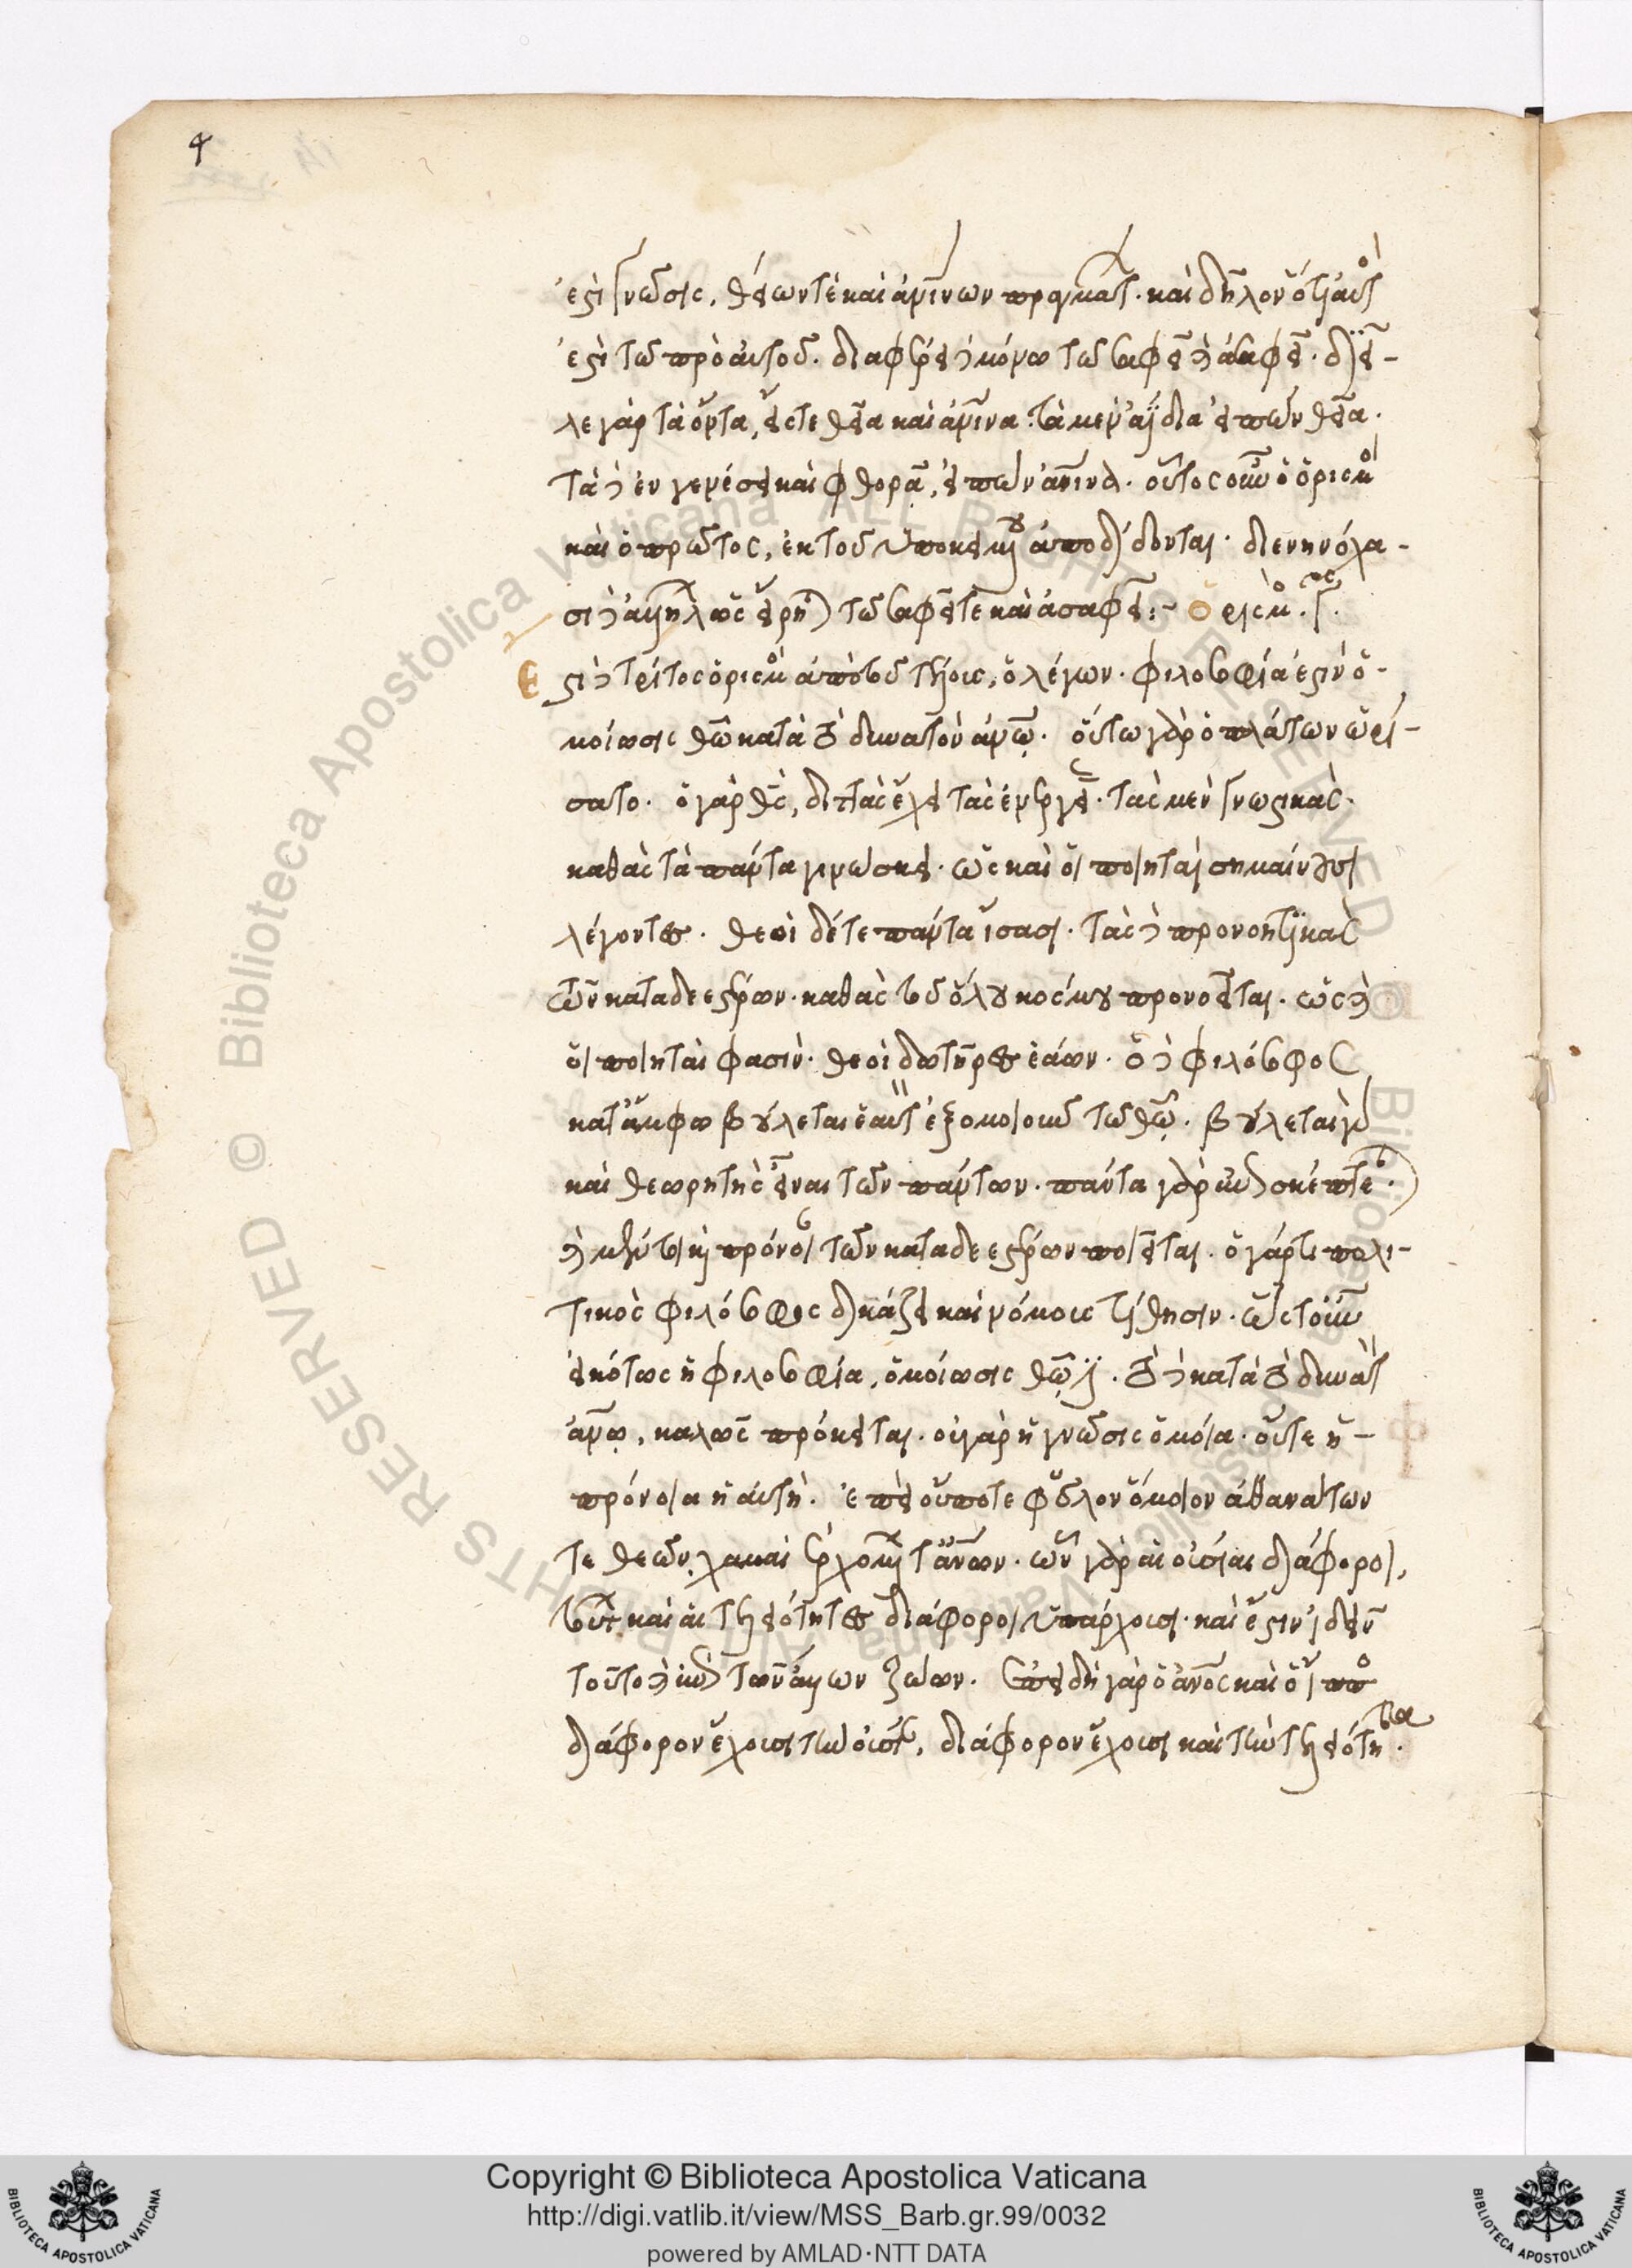 4
ἐστὶ γνῶσις, θείων τὲ καὶ ἀνθρωπίνων πραγμάτων. καὶ δῆλον ὅτι ὁ αὐτός
ἐστὶ τῶ πρὸ αὐτοῦ. διαφέρει δὲ μόνω τῶ σαφεῖ καὶ ἀσαφεῖ. διεῖ-
λε γὰρ τὰ ὄντα, εἴς τε θεῖα καὶ ἀνθρώπινα. τὰ μὲν ἀΐδια εἰπὼν θεῖα.
τὰ δὲ ἐν γενέσει καὶ φθορᾶ, εἰπὼν ἀνθρώπινα. οὗτος οὖν ὁ ὁρισμὸς
καὶ ὁ πρῶτος, ἐκ τοῦ ὑποκειμένου ἀποδίδονται. διενηνόχα-
σι δὲ ἀλλήλων ὡς εἴρηται τῶ σαφεῖ τὲ καὶ ἀσαφεῖ:- ὁρισμὸς γος.
Ἐστὶ δὲ τρίτος ὁρισμὸς ἀπὸ τοῦ τέλους, ὁ λέγων. φιλοσοφία ἐστὶν ὁ-
μοίωσις θεῶ κατὰ τὸ δυνατὸν ἀνθρώπω. οὕτω γὰρ ὁ πλάτων ὡρί-
σατο. ὁ γὰρ θεὸς, διττὰς ἔχει τὰς ἐνεργείας. τὰς μὲν γνωστικὰς.
καθ' ἃς τὰ πάντα γινώσκει. ὡς καὶ οἱ ποιηταὶ σημαίνουσι
λέγοντες. θεοὶ δέ τε πάντα ἴσασι. τὰς δὲ προνοητικὰς
τῶν καταδεεστέρων. καθ' ἃς τοῦ ὅλου κόσμου προνοεῖται. ὡς καὶ
οἱ ποιηταὶ φασὶν. θεοὶ δωτῆρες ἐάων. ὁ δὲ φιλόσοφος
κατ' ἄμφω βούλεται ἑαυτὸν ἐξομοιοῦν τῶ θεῶ. βούλεται γὰρ
καὶ θεωρητὴς εἶναι τῶν πάντων. πάντα γὰρ οὗτος σκέπτεται.
καὶ πρόνοιαν τῶν καταδεεστέρων ποιεῖται. ὁ γάρ τι πολι-
τικὸς φιλόσοφος δικάζει καὶ νόμους τίθησιν. ὥστ' οὖν
εἰκότως ἡ φιλοσοφία, ὁμοίωσις θεῶ ἐστι. τὸ δὲ κατὰ τὸ δυνατὸν
ἀνθρώπω, καλῶς πρόκειται. οὐ γὰρ ἡ γνῶσις ὁμοία. οὔτε ἡ
πρόνοια ἡ αὐτή. ἐπεὶ οὔποτε φῦλον ὅμοιον ἀθανάτων
τε θεῶν, χαμαὶ ἐρχομένων τ' ἀνθρώπων. ὧν γὰρ αἱ οὐσίαι διάφοροι,
τούτων καὶ αἱ τελειότητες διάφοροι ὑπάρχουσι. καὶ ἔστιν ἰδεῖν
τοῦτο καὶ ἐπὶ τῶν ἄλλων ζώων. ἐπειδὴ γὰρ ὁ ἄνθρωπος καὶ ὁ ἵππος
διάφορον ἔχουσι τὴν οὐσίαν, διάφορον ἔχουσι καὶ τὴν τελειότητα.
Copyright © Biblioteca Apostolica Vaticana
http://digi.vatlib.it/view/MSS_Barb.gr.99/0032
powered by AMLAD·NTT DATA